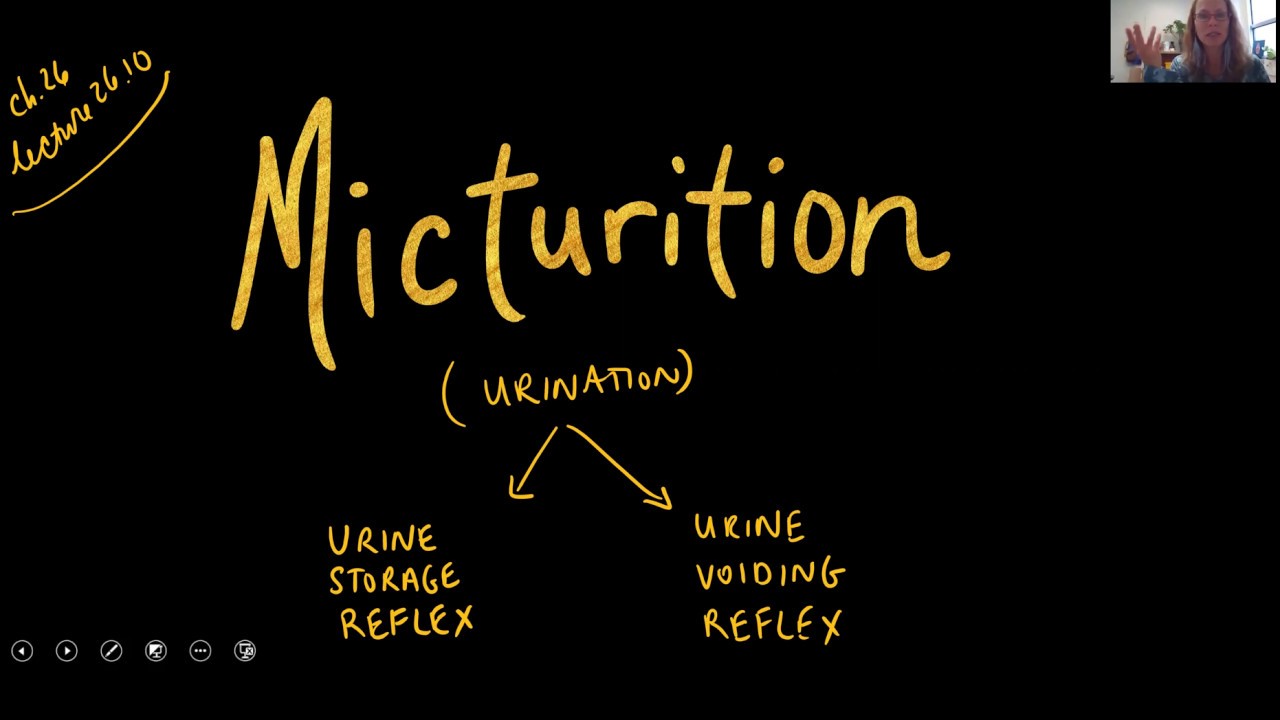 ch.26
lecture 26.10
Micturition
(URINATION)
URINE
STORAGE
REFLEX
URINE
VOIDING
REFLEX